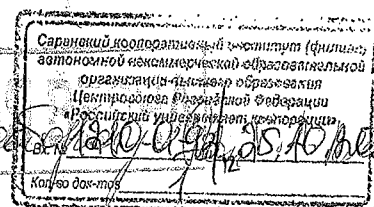 Саранский кооперативный институт (филиал)
автономной некоммерческой образовательной
организации высшего образования
Центросоюза Российской Федерации
«Российский университет кооперации»
Вх. 25.10
Кол-во док-тов 1